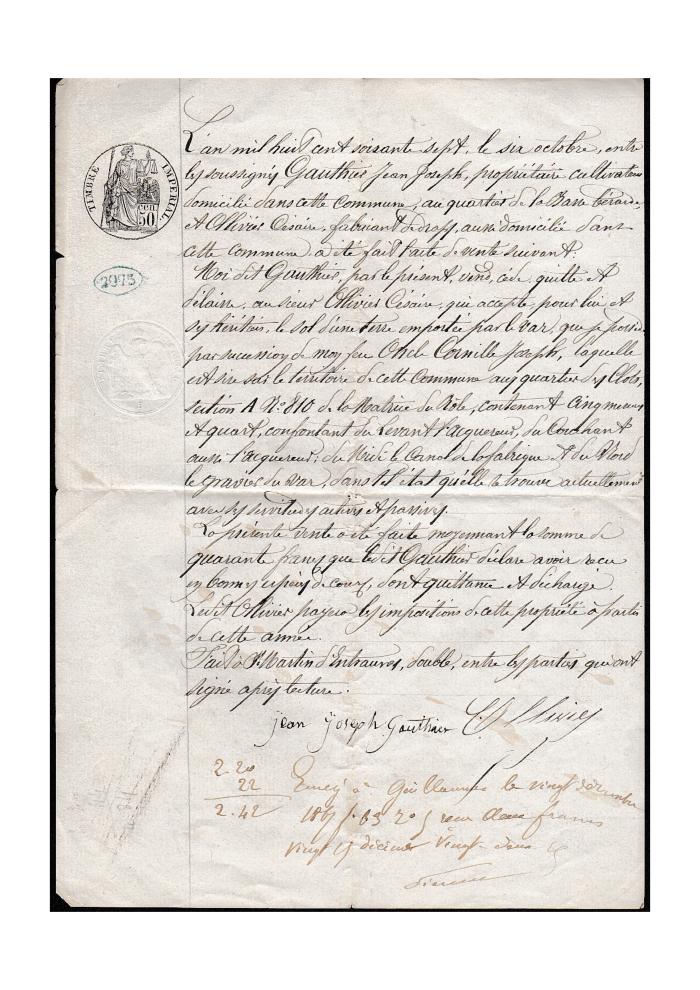 TIMBRE IMPERIAL
50 cen
2975
L'an mil huit cent soixante sept, le six octobre, entre
les soussignés Gauthier Jean Joseph, propriétaire cultivateur
domicilié dans cette Commune, au quartier de la Basse
et Ollivier Césaire, fabricant de draps, aussi domicilié dans
cette commune a été fait l'acte de vente suivant:
Moi dit Gauthier, par le présent, vend, cède, quitte et
délaisse, au sieur Ollivier Césaire, qui accepte, pour lui et
ses héritiers, le sol d'une terre emportée par le var, que je possède
par sucession de mon feu Oncle Cornille Joseph, laquelle
est sise sur le territoire de cette Commune aux quartier des Clots,
section A N° 810 de la Matrice du Rôle, contenant cinq
et quart, confontant du Levant l'acquereur, du Couchant
aussi l'acquereur; du Midi le Canal de la fabrique et du Nord
le gravier du var, dans l'état qu'elle se trouve actuellement
avec ses servitudes actives et passives.
La présente vente a été faite moyennant la somme de
quarante francs que ledit Gauthier déclare avoir recu
en bonnes espèces de cours, dont quittance et décharge.
Ledit Ollivier payera les impositions de cette propriété à partir
de cette année.
Fait à St Martin d'Entraunes, double, entre les parties qui ont
signé après lecture.
jean joseph Gauthier C. Ollivier
2.20
22
2.42
Enreg à Guillaumes le vingt décembre
1867 f. 83 reçu deux francs
vingt décimes vingt-deux